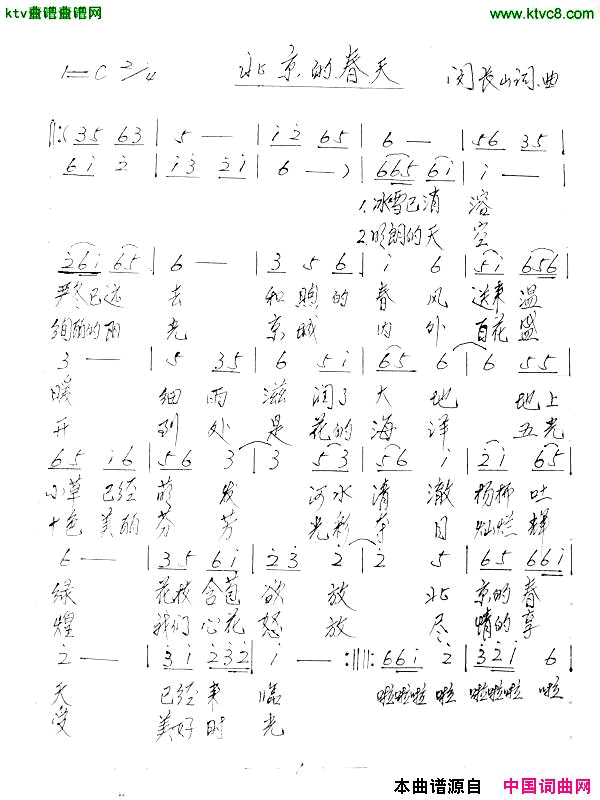 ktv盘谱盘谱网 www.ktvc8.com
1=C 2/4 北京的春天 闵长山词.曲
‖:( 35 63 | 5 — | i̇ 2̇ 65 | 6 — | 56 35 |
6i̇ 2̇ | i̇3̇ 2̇i̇ | 6 — ) | 665 6i̇ | i̇ — |
1.冰雪已消 溶
2.明朗的天 空
2̇6i̇ 65 | 6 — | 3 56 | i̇ 6 | 5i̇ 656 |
严冬已远 去 和煦的 春 风 送来温
绚丽的阳 光 京城 内外 百花盛
3 — | 5 35 | 6 5i̇ | 65 6 | 6 55 |
暖 细雨 滋润了 大地 地上
开 到处 是花的 海洋 五光
65 i̇6 | 56 3 | 3 53 | 56 i̇ | 2̇i̇ 65 |
小草已经 萌发 河水 清澈 杨柳吐
十色美丽 芬芳 光彩 夺目 灿烂辉
6 — | 35 6i̇ | 2̇3̇ 2̇ | 2̇ 5 | 65 66i̇ |
绿 花枝含苞 欲放 北 京的春
煌 我们心花 怒放 尽 情的享
2̇ — | 3̇i̇ 2̇3̇2̇ | i̇ — :‖ 66i̇ 2̇ | 3̇2̇i̇ 6 |
天 已经来 临 啦啦啦 啦 啦啦啦 啦
受 美好时 光
本曲谱源自 中国词曲网